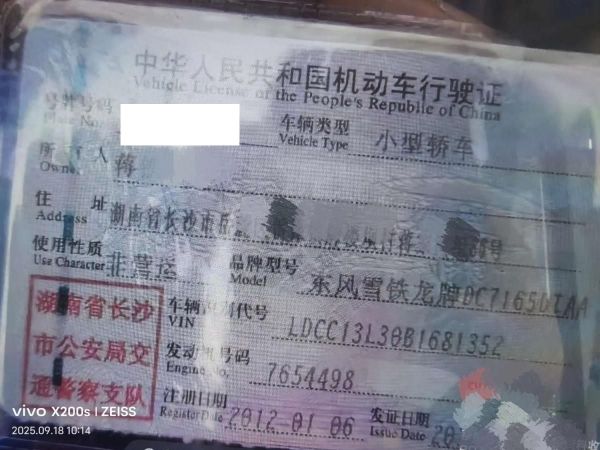 中华人民共和国机动车行驶证
Vehicle License of the People's Republic of China
号牌号码
Plate No. 车辆类型 小型轿车
Vehicle Type
所 人 蒋
Owner
住 址 湖南省长沙市 号
Address
使用性质 非营运 品牌型号 东风雪铁龙牌DC7165DTAA
Use Character Model
湖南省长沙
市公安局交
通警察支队
车辆识别代号 LDCC13L30B1681352
VIN
发动机号码 7654498
Engine No.
注册日期 2012-01 06 发证日期 20
Register Date Issue Date
vivo X200s | ZEISS
2025.09.18 10:14